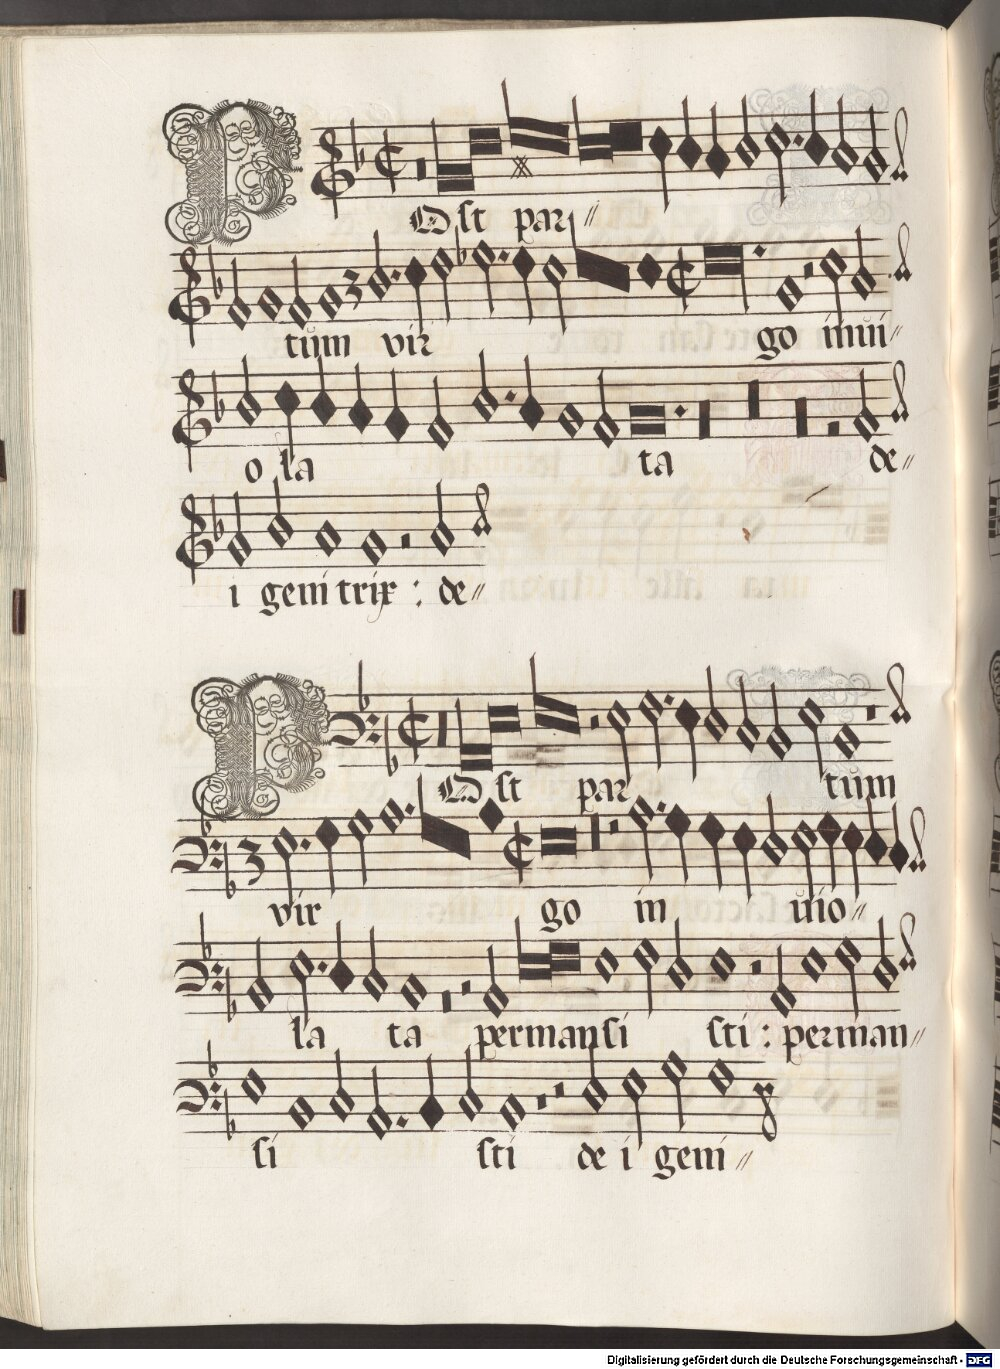 POst par
tũm vir go inui
o la ta de
i geni trix : de
POst par tũm
vir go in uio
la ta permansi sti : perman
si sti de i geni
Digitalisierung gefördert durch die Deutsche Forschungsgemeinschaft - DFG